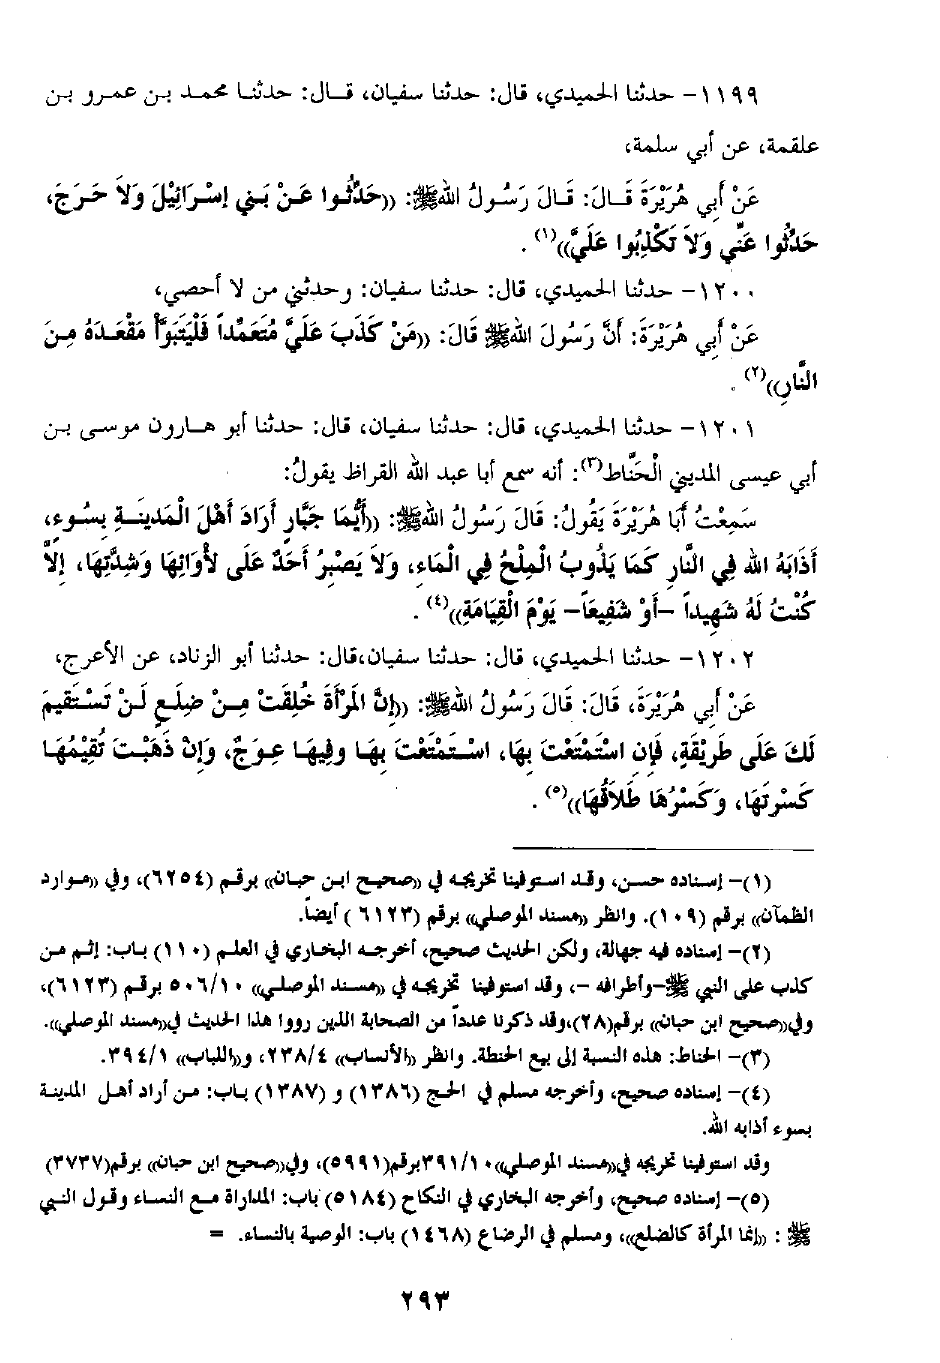 ١١٩٩- حدثنا الحميدي، قال: حدثنا سفيان، قال: حدثنا محمد بن عمرو بن
علقمة، عن أبي سلمة،
عَنْ أَبِي هُرَيْرَةَ قَالَ: قَالَ رَسُولُ اللهِ ﷺ: ((حَدِّثُوا عَنْ بَنِي إِسْرَائِيْلَ وَلاَ حَرَجَ،
حَدِّثُوا عَنِّي وَلاَ تَكْذِبُوا عَلَيَّ))(١) .
١٢٠٠- حدثنا الحميدي، قال: حدثنا سفيان: وحدثني من لا أحصي،
عَنْ أَبِي هُرَيْرَةَ: أَنَّ رَسُولَ اللهِ ﷺ قَالَ: ((مَنْ كَذَبَ عَلَيَّ مُتَعَمِّداً فَلْيَتَبَوَّأْ مَقْعَدَهُ مِنَ
النَّارِ))(٢) .
١٢٠١- حدثنا الحميدي، قال: حدثنا سفيان، قال: حدثنا أبو هارون موسى بن
أبي عيسى المديني الْحَنَّاط(٣): أنه سمع أبا عبد الله القراظ يقولُ:
سَمِعْتُ أَبَا هُرَيْرَةَ يَقُولُ: قَالَ رَسُولُ اللهِ ﷺ: ((أَيُّمَا جَبَّارٍ أَرَادَ أَهْلَ الْمَدِينَةِ بِسُوءٍ،
أَذَابَهُ اللهُ فِي النَّارِ كَمَا يَذُوبُ الْمِلْحُ فِي الْمَاءِ، وَلاَ يَصْبِرُ أَحَدٌ عَلَى لأْوَائِهَا وَشِدَّتِهَا، إِلاَّ
كُنْتُ لَهُ شَهِيداً -أَوْ شَفِيعَاً- يَوْمَ الْقِيَامَةِ))(٤) .
١٢٠٢- حدثنا الحميدي، قال: حدثنا سفيان،قال: حدثنا أبو الزناد، عن الأعرج،
عَنْ أَبِي هُرَيْرَةَ، قَالَ: قَالَ رَسُولُ اللهِ ﷺ: ((إِنَّ الْمَرْأَةَ خُلِقَتْ مِنْ ضِلَعٍ لَنْ تَسْتَقِيمَ
لَكَ عَلَى طَرِيْقَةٍ، فَإِن اسْتَمْتَعْتَ بِهَا، اسْتَمْتَعْتَ بِهَا وَفِيهَا عِوَجٌ، وَإِنْ ذَهَبْتَ تُقِيْمُهَا
كَسَرْتَهَا، وَكَسْرُهَا طَلاَقُهَا))(٥) .
(١)- إسناده حسن، وقد استوفينا تخريجه في ((صحيح ابن حبان)) برقم (٦٢٥٤)، وفي ((موارد
الظمآن)) برقم (١٠٩). وانظر ((مسند الموصلي)) برقم (٦١٢٣) أيضاً.
(٢)- إسناده فيه جهالة، ولكن الحديث صحيح، أخرجه البخاري في العلم (١١٠) باب: إثم من
كذب على النبي ﷺ-وأطرافه -، وقد استوفينا تخريجه في ((مسند الموصلي)) ٥٠٦/١٠ برقم (٦١٢٣)،
وفي((صحيح ابن حبان)) برقم(٢٨)،وقد ذكرنا عدداً من الصحابة الذين رووا هذا الحديث في((مسند الموصلي)).
(٣)- الحناط: هذه النسبة إلى بيع الحنطة. وانظر ((الأنساب)) ٢٣٨/٤، و((اللباب)) ٣٩٤/١.
(٤)- إسناده صحيح، وأخرجه مسلم في الحج (١٣٨٦) و (١٣٨٧) باب: من أراد أهل المدينة
بسوء أذابه الله.
وقد استوفينا تخريجه في((مسند الموصلي))٣٩١/١٠برقم(٥٩٩١)، وفي((صحيح ابن حبان)) برقم(٣٧٣٧)
(٥)- إسناده صحيح، وأخرجه البخاري في النكاح (٥١٨٤) باب: المداراة مع النساء وقول النبي
ﷺ : ((إنما المرأة كالضلع))، ومسلم في الرضاع (١٤٦٨) باب: الوصية بالنساء. =
٢٩٣